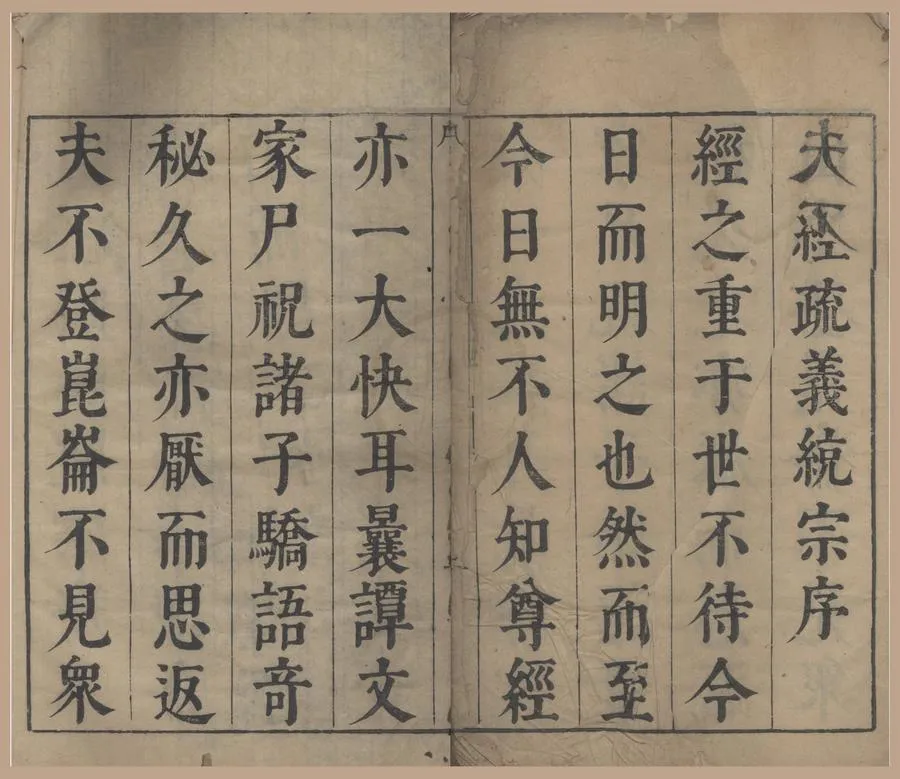 夫經疏義統宗序
經之重于世不待今
日而明之也然而至
今日無不人知尊經
亦一大快耳曩譚文
家尸祝諸子驕語竒
秘久之亦厭而思返
夫不登崑崙不見眾